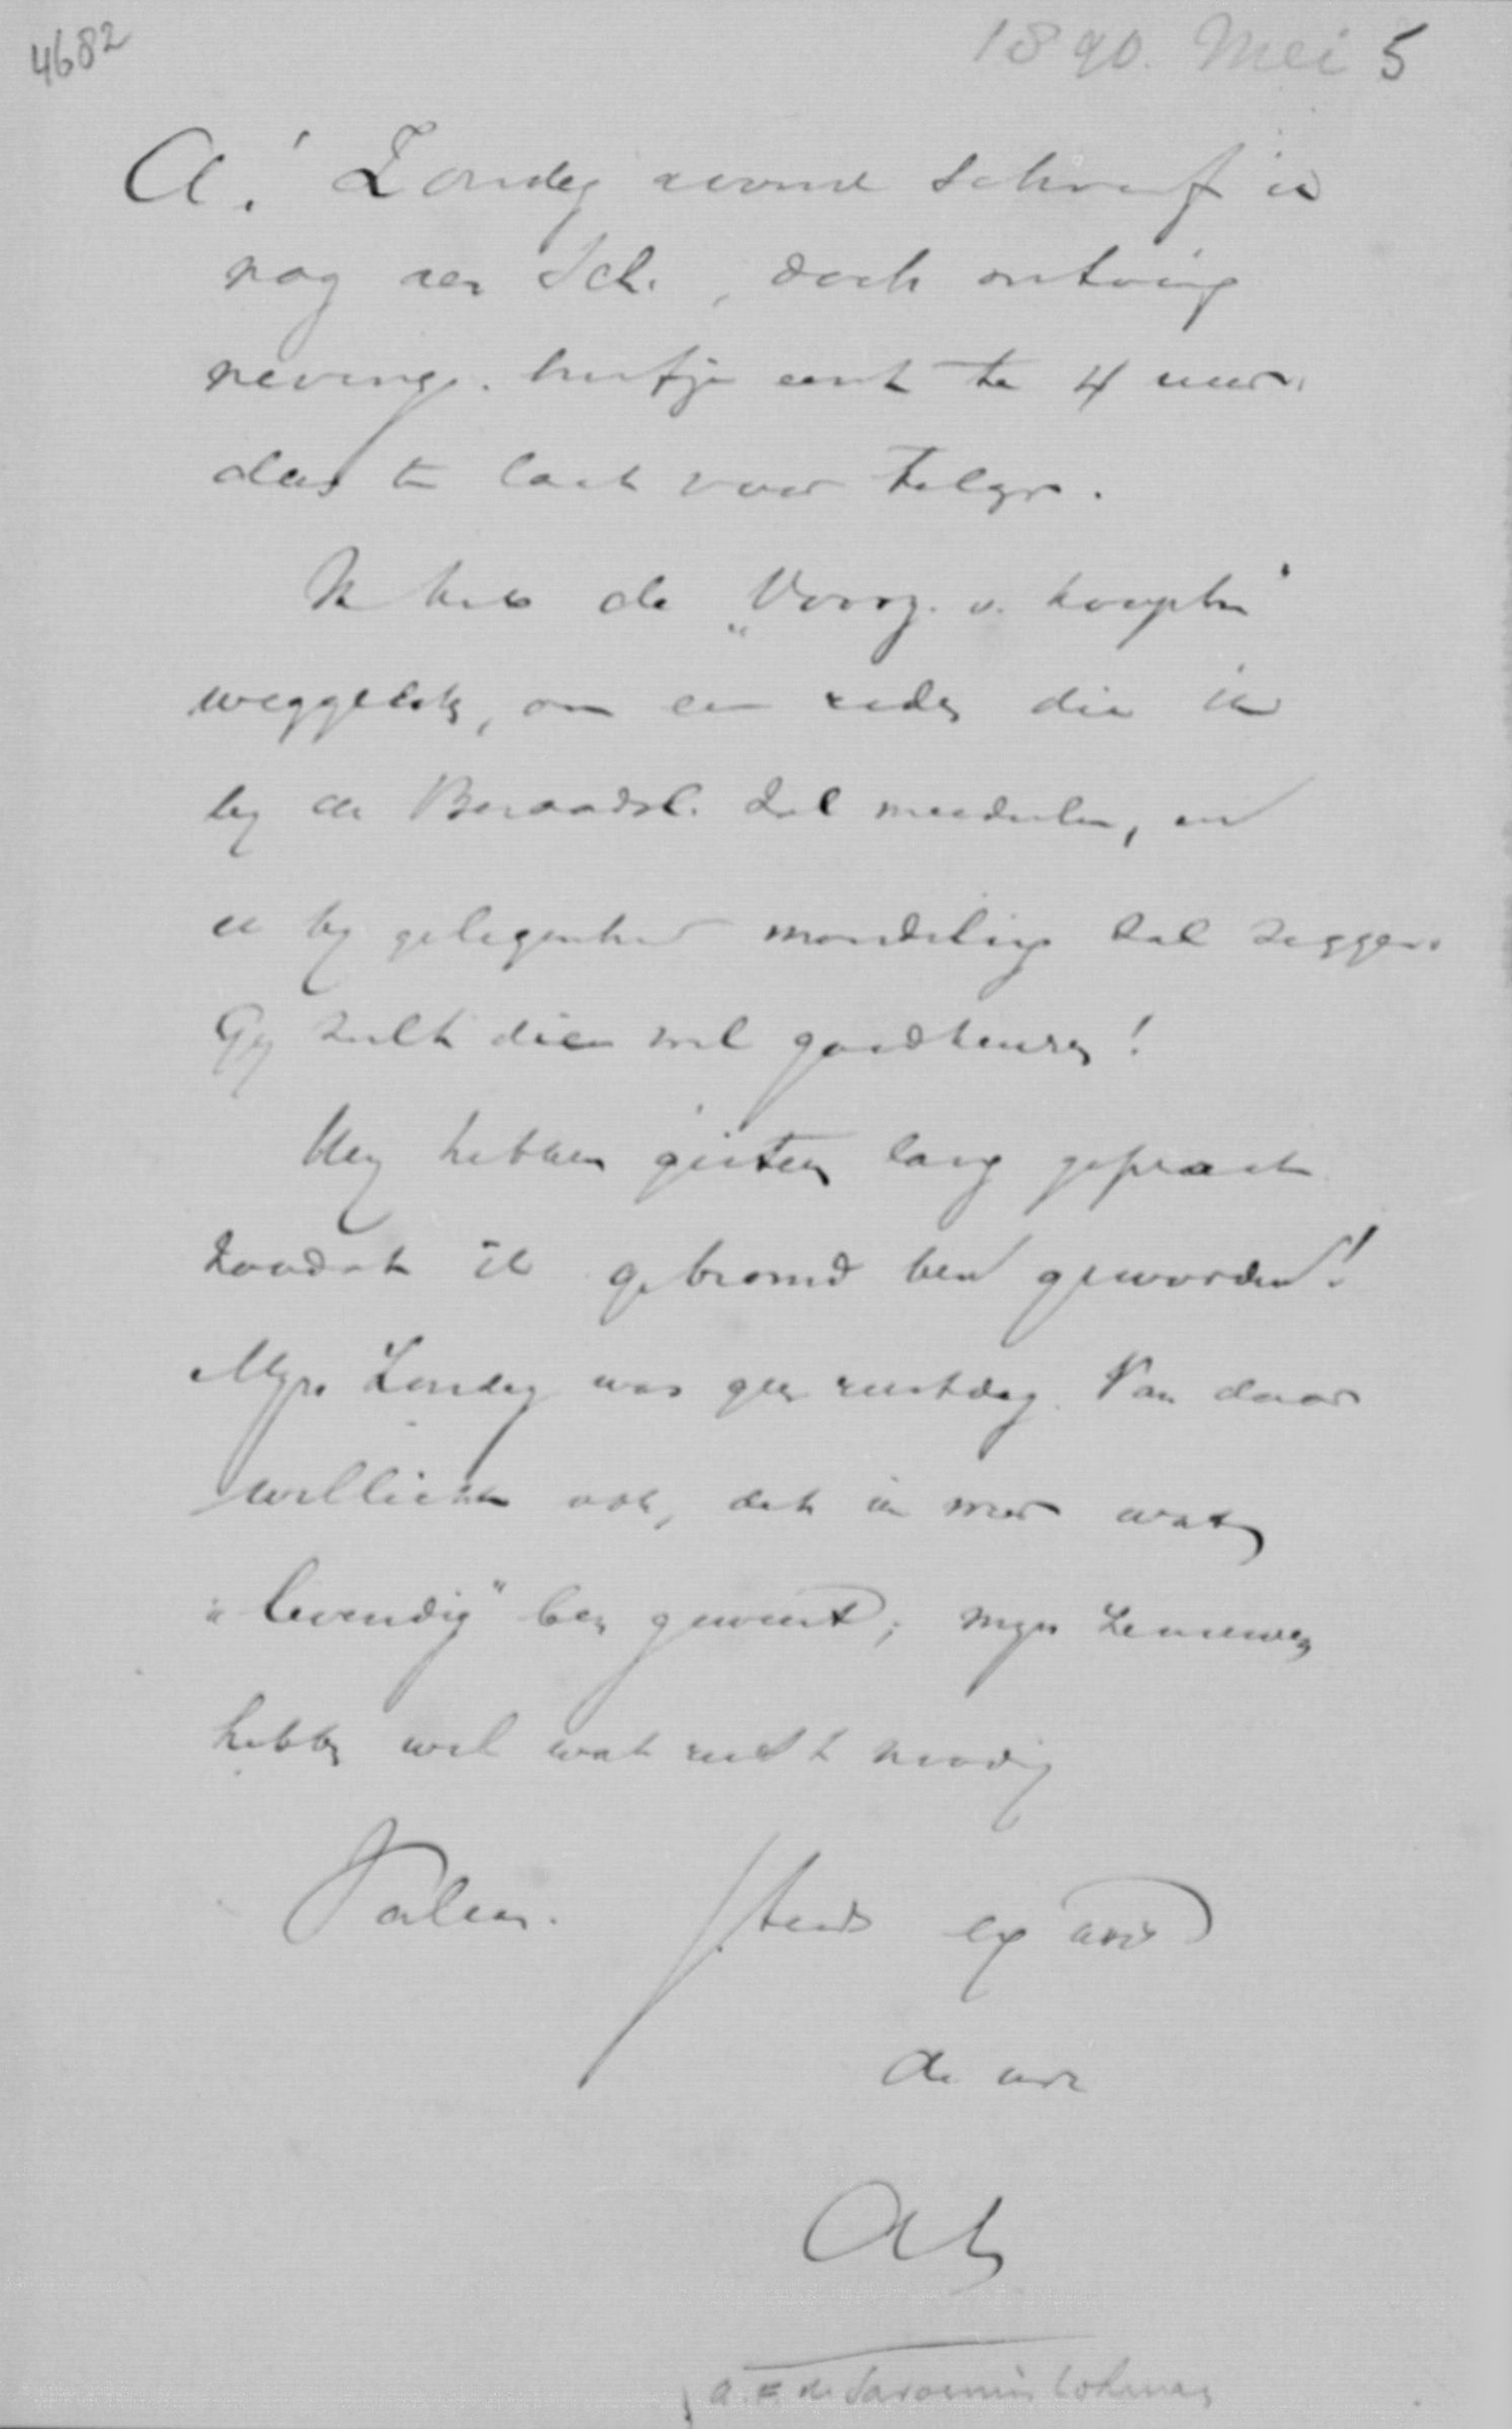 4682
1890. Mei 5
A.! Zondag avond schreef ik
nog aan Sch., doch ontving
nevensg. briefje eerst te 4 uur.
dus te laat voor telegr.
Ik heb de „Voorz. v. kamp"
weggelaten, om een reden die ik
by de Beraadsl. zal meedeelen, en
u by gelegenheid mondeling zal zeggen.
Gy zult dien wel goedkeuren!
Wy hebben gisteren lang gepraat
zoodat ik gebromd ben geworden!
Myn Zondag was geen rustdag. Van daar
wellicht ook, dat ik meer wat
„levendig" ben geweest; myn zenuwen
hebben wel wat rust noodig
Vale. Steeds
de uwe
AL
A. F. de Savornin Lohman